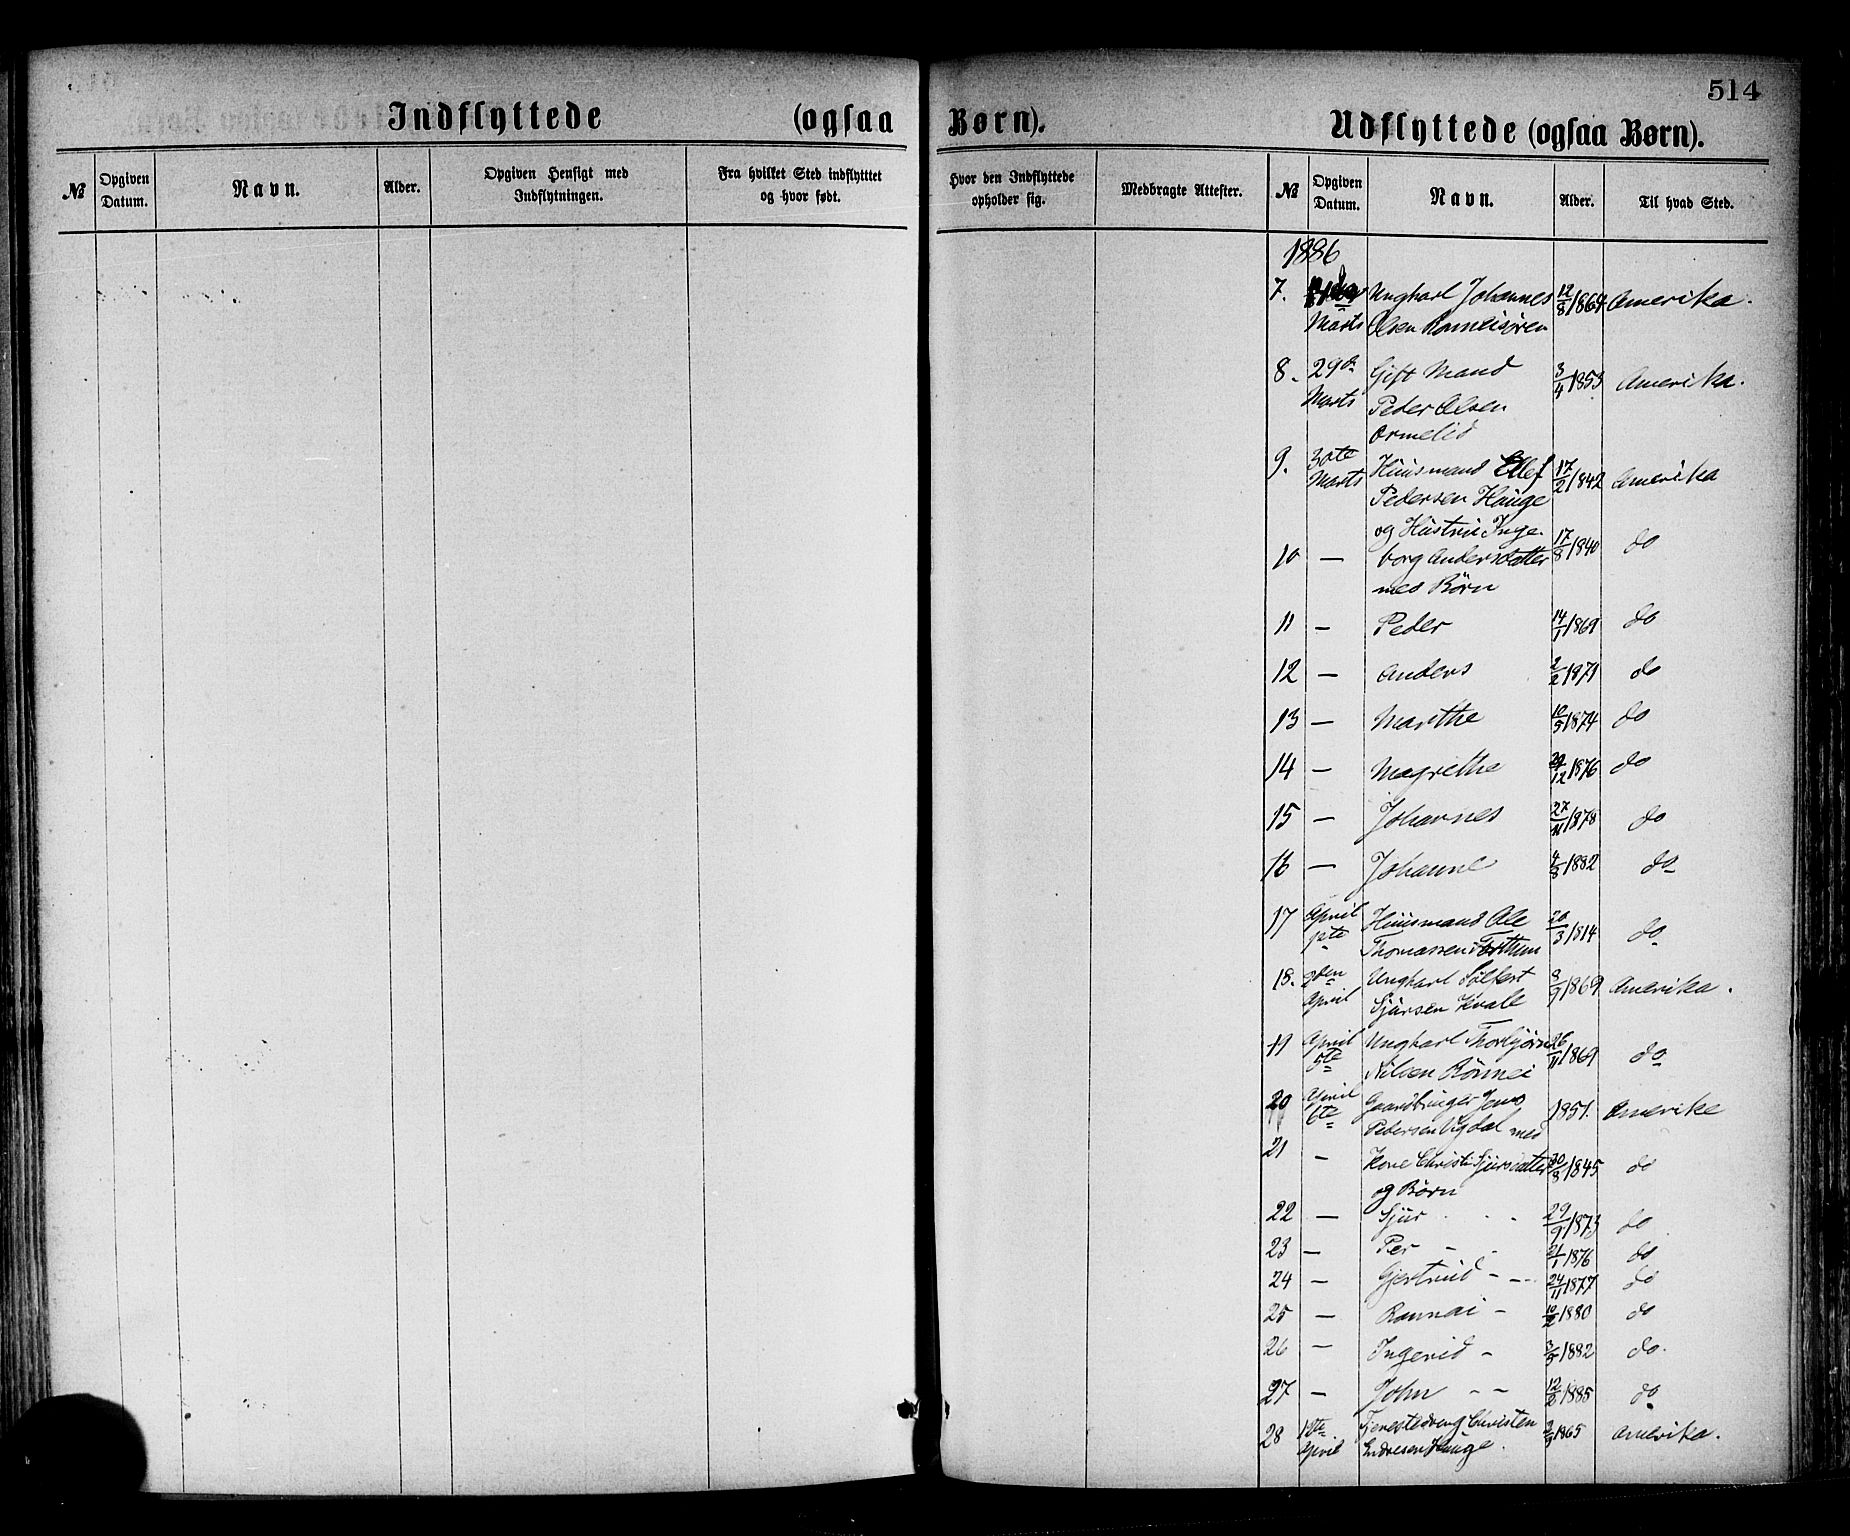 514
Indflyttede (ogsaa Børn).
Udflyttede (ogsaa Børn).
№ Opgiven Datum. Navn. Alder. Opgiven Hensigt med Indflytningen. Fra hvilket Sted indflytttet og hvor født. Hvor den Indflyttede opholder sig. Medbragte Attester. № Opgiven Datum. Navn. Alder. Til hvad Sted.
1886
7. Ungkarl Johannes 12/8 1864 Amerika.
Marts Olsen
8. 29de Gift Mand 3/4 1853 Amerika.
Marts Peder Olsen
Ormelid
9. 30te Huusmand Ellef 17/2 1842 Amerika
Marts Pedersen Hauge
og Hustrue Inge-
10 — borg Andersdatter 17/8 1840 do
med Børn
11 — Peder 14/1 1869 do
12 — Anders 2/2 1871 do
13 — Marthe 10/5 1874 do
14 — Magrethe /12 1876 do
15 — Johannes 27/11 1878 do
16 — Johanne 4/8 1882 do
17 April Huusmand Ole 20/3 1814 do
1ste Thomassen
18. 2den Ungkarl Sølfest 8/9 1869 Amerika.
April Sjursen Kvale
19 April Ungkarl Thorbjørn 26/11 1869 do
5te Nilsen Rönnei
20 April Gaardbruger Jens 1851. Amerika
6te Pedersen Vigdal med
21 — Kone Christi Sjursdatter 30/8 1845 do
og Børn
22 — Sjur - - 29/9 1873 do
23 — Per - - 21/1 1876 do
24 — Gjertrud - - - 24/11 1877 do
25 — Rannei - 10/2 1880 do
26 — Ingerid - 3/5 1882 do.
27 — John - - 12/2 1885 do
28 Tjenestedreng Christen 1865 Amerika.
April Endresen Hauge.